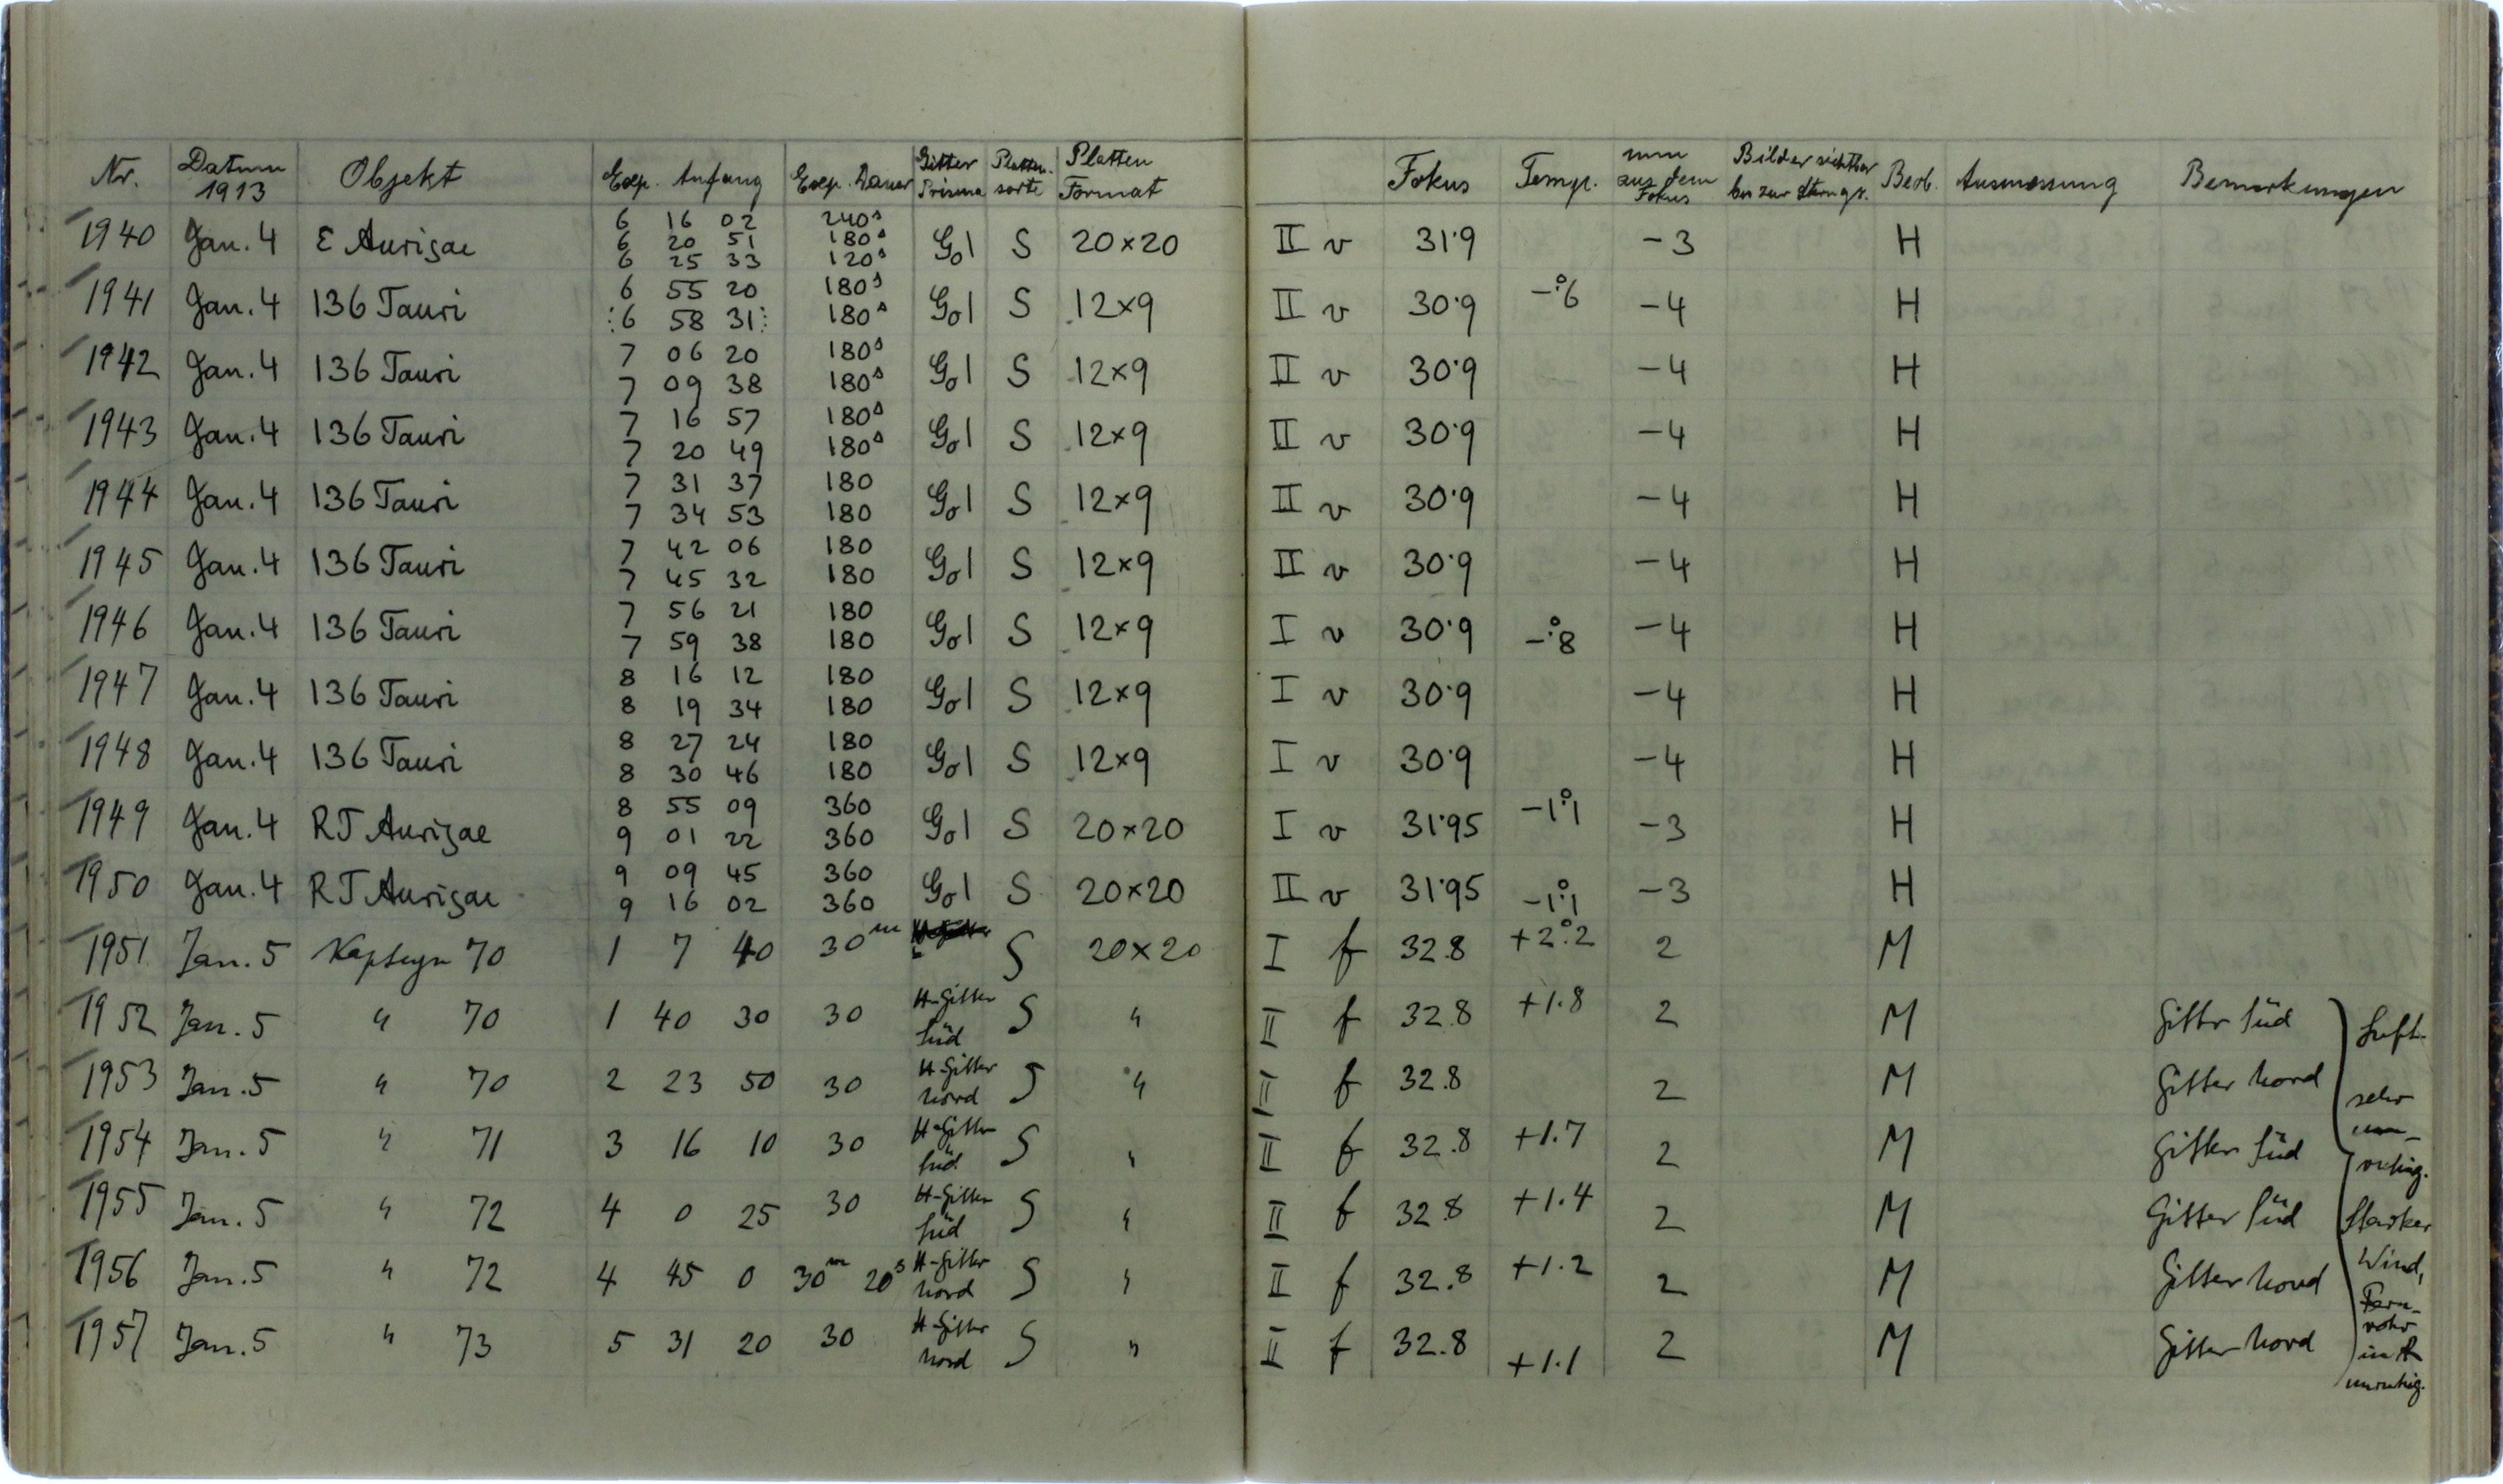 Nr. Datum 1913 Objekt Exp. Anfang Exp. Dauer Gitter Prisma Platten-sorte Platten Format Fokus Temp. mm aus dem Fokus Bilder sichtbar bis zur Sterngr. Beob. Ausmessung Bemerkungen
1940 Jan. 4 ε Aurigae 6 16 02 240s G01 S 20×20 II v 31.9 -3 H
6 20 51 180s
6 25 33 120s
1941 Jan. 4 136 Tauri 6 55 20 180s G01 S 12×9 II v 30.9 -°.6 -4 H
:6 58 31: 180s
1942 Jan. 4 136 Tauri 7 06 20 180s G01 S 12×9 II v 30.9 -4 H
7 09 38 180s
1943 Jan. 4 136 Tauri 7 16 57 180s G01 S 12×9 II v 30.9 -4 H
7 20 49 180s
1944 Jan. 4 136 Tauri 7 31 37 180 G01 S 12×9 II v 30.9 -4 H
7 34 53 180
1945 Jan. 4 136 Tauri 7 42 06 180 G01 S 12×9 II v 30.9 -4 H
7 45 32 180
1946 Jan. 4 136 Tauri 7 56 21 180 G01 S 12×9 I v 30.9 -°.8 -4 H
7 59 38 180
1947 Jan. 4 136 Tauri 8 16 12 180 G01 S 12×9 I v 30.9 -4 H
8 19 34 180
1948 Jan. 4 136 Tauri 8 27 24 180 G01 S 12×9 I v 30.9 -4 H
8 30 46 180
1949 Jan. 4 RT Aurigae 8 55 09 360 G01 S 20×20 I v 31.95 -1°.1 -3 H
9 01 22 360
1950 Jan. 4 RT Aurigae 9 09 45 360 G01 S 20×20 II v 31.95 -1°.1 -3 H
9 16 02 360
1951 Jan. 5 Kapteyn 70 1 7 40 30m S 20×20 I f 32.8 +2°.2 2 M
1952 Jan. 5 " 70 1 40 30 30 H-Gitter Süd S " II f 32.8 +1.8 2 M Gitter Süd Luft
1953 Jan. 5 " 70 2 23 50 30 H-Gitter Nord S " II f 32.8 2 M Gitter Nord sehr
1954 Jan. 5 " 71 3 16 10 30 H-Gitter Süd S " II f 32.8 +1.7 2 M Gitter Süd un-ruhig.
1955 Jan. 5 " 72 4 0 25 30 H-Gitter Süd S " II f 32.8 +1.4 2 M Gitter Süd Starker
1956 Jan. 5 " 72 4 45 0 30m 20s H-Gitter Nord S " II f 32.8 +1.2 2 M Gitter Nord Wind,
1957 Jan. 5 " 73 5 31 20 30 H-Gitter Nord S " II f 32.8 +1.1 2 M Gitter Nord Fern-rohr
unruhig.